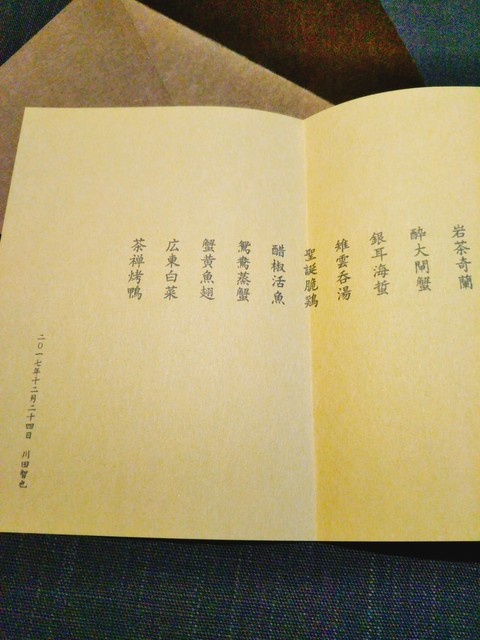 岩茶奇蘭
酔大閘蟹
銀耳海蜇
雉雲呑湯
聖誕脆鶏
醋椒活魚
鴛鴦蒸蟹
蟹黄魚翅
広東白菜
茶禅烤鴨
二〇一七年十二月二十四日 川田智也